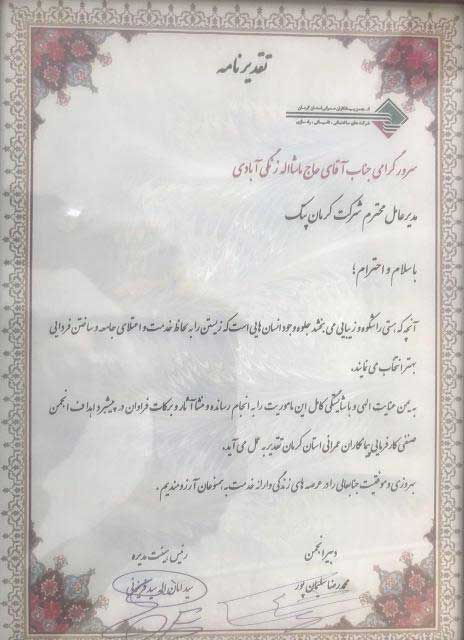 تقدیرنامه
انجمن پیمانکاران عمرانی استان کرمان
شرکت های ساختمانی، تاسیساتی، راهسازی
سرور گرامی جناب آقای حاج ماشااله زنگی آبادی
مدیرعامل محترم شرکت کرمان پیک
با سلام و احترام ؛
آنچه که هستی را شکوه و زیبایی می بخشد جلوه وجود انسان هایی است که زیستن را به لحاظ خدمت و اعتلای جامعه و ساختن فردایی
بهتر انتخاب می نمایند.
به یمن عنایت الهی و با شایستگی کامل این ماموریت را به انجام رسانده و منشا آثار و برکات فراوان در پیشبرد اهداف انجمن
صنفی کارفرمایی پیمانکاران عمرانی استان کرمان تقدیر به عمل می آید.
بهروزی و موفقیت جنابعالی را در عرصه های زندگی و ارائه خدمت به همنوعان آرزومندیم .
دبیر انجمن
محمدرضا سلیمان پور
رئیس هیئت مدیره
سید امان اله سید